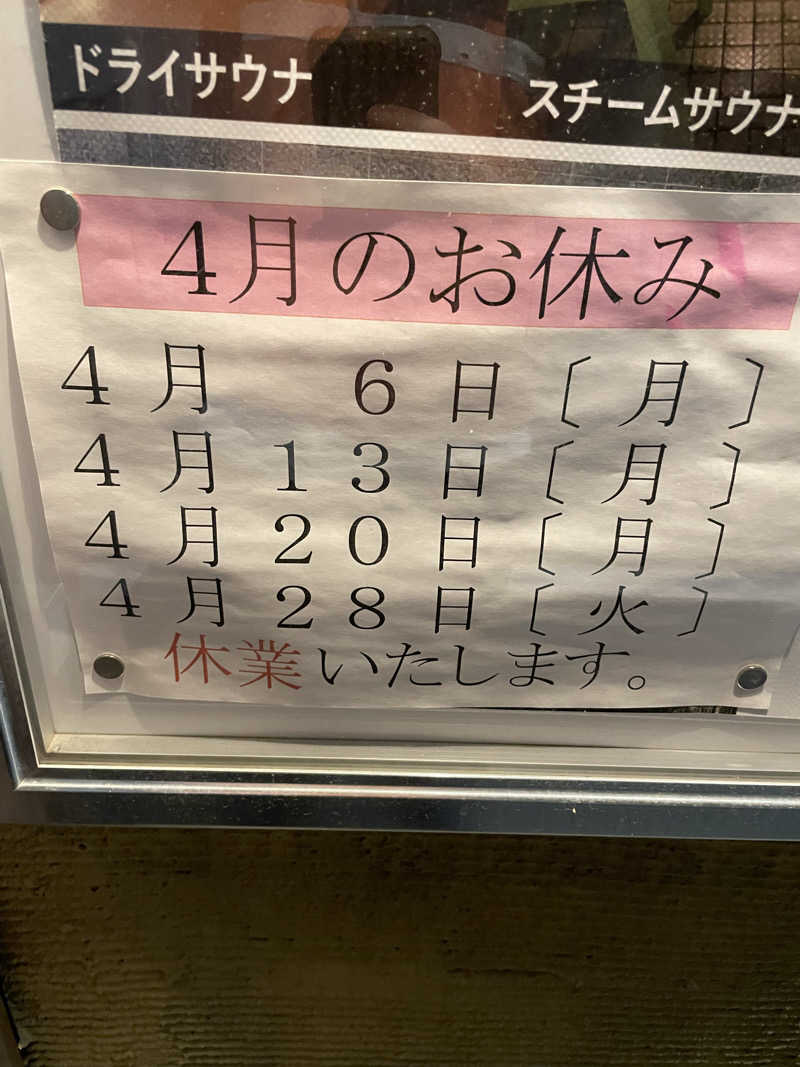 ドライサウナ
スチームサウナ
4月のお休み
4月 6日〔月〕
4月13日〔月〕
4月20日〔月〕
4月28日〔火〕
休業いたします。